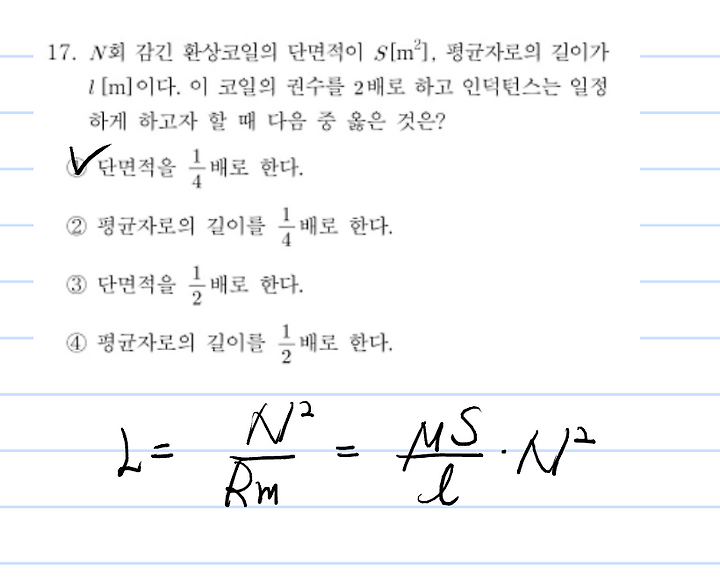 17. N회 감긴 환상코일의 단면적이 S[m²], 평균자로의 길이가
l [m]이다. 이 코일의 권수를 2배로 하고 인덕턴스는 일정
하게 하고자 할 때 다음 중 옳은 것은?
① 단면적을 1/4 배로 한다.
② 평균자로의 길이를 1/4 배로 한다.
③ 단면적을 1/2 배로 한다.
④ 평균자로의 길이를 1/2 배로 한다.
L = N²/Rm = μS/l · N²